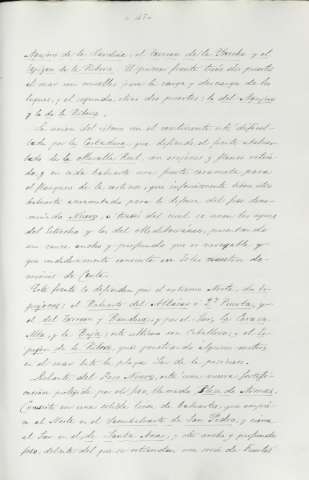 - 47 -
Aguijon de la Sardina; el torreon de la Brecha y el
Espigon de la Ribera. El primer frente tiene dos puertas
al mar con muelles para la carga y descarga de los
buques, y el segundo, otras dos puertas; la del Aguijon
y la de la Ribera.
La union del istmo con el continente está dificul-
tada por la Cortadura, que defiende el frente Abaluar-
tado de la Muralla Real, con orejones y flancos retira-
dos, y en cada baluarte una fuerte casamata para el
flanqueo de la cortina, que inferiormente tiene otra
baluarte acasamatada para la defensa del foso deno-
minado Navío, a través del cual se unen las aguas
del Estrecho y las del Mediterráneo, presentando
un cauce ancho y profundo que es navegable y
que indudablemente convierte en Isla nuestro do-
minio de Ceuta.
Este frente lo defienden por el extremo Norte, los Es-
pigones; el Baluarte del Albacar o 2ª Puerta, y
el del Torreon y Bandera; y por el Sur, la Coraza
Alta, y la Baja; este último con Caballero; y el Es-
pigon de la Ribera, que penetrando algunos metros
en el mar bate la playa Sur de la península.
Delante del Foso Navío, está una nueva fortifi-
cación protegida por el foso, llamada Plaza de Armas.
Consiste en una sólida línea de baluartes, que empie-
za al Norte en el Semibaluarte de San Pedro, y termina
al Sur en el de Santa Ana; y de ancho y profundo
foso, delante del que se extiende, una serie de fuertes